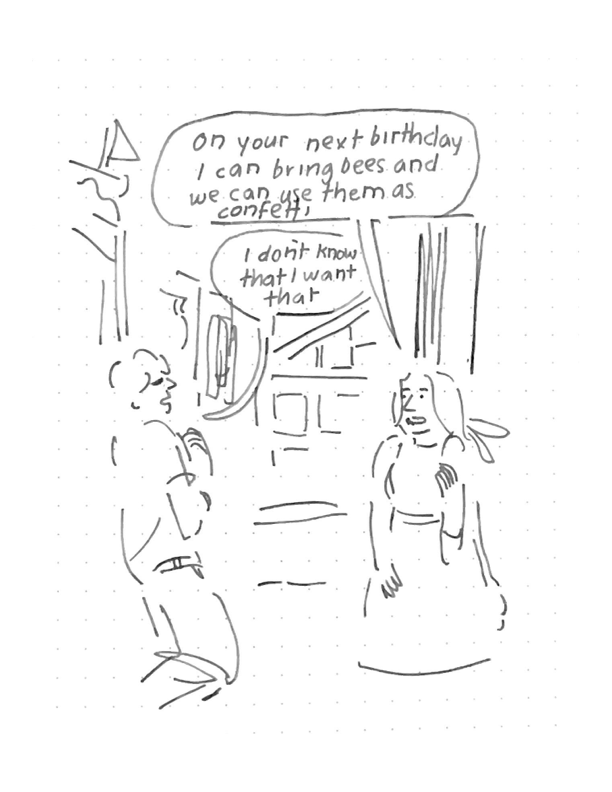 on your next birthday
I can bring bees and
we can use them as
confetti
I don't know
that I want
that